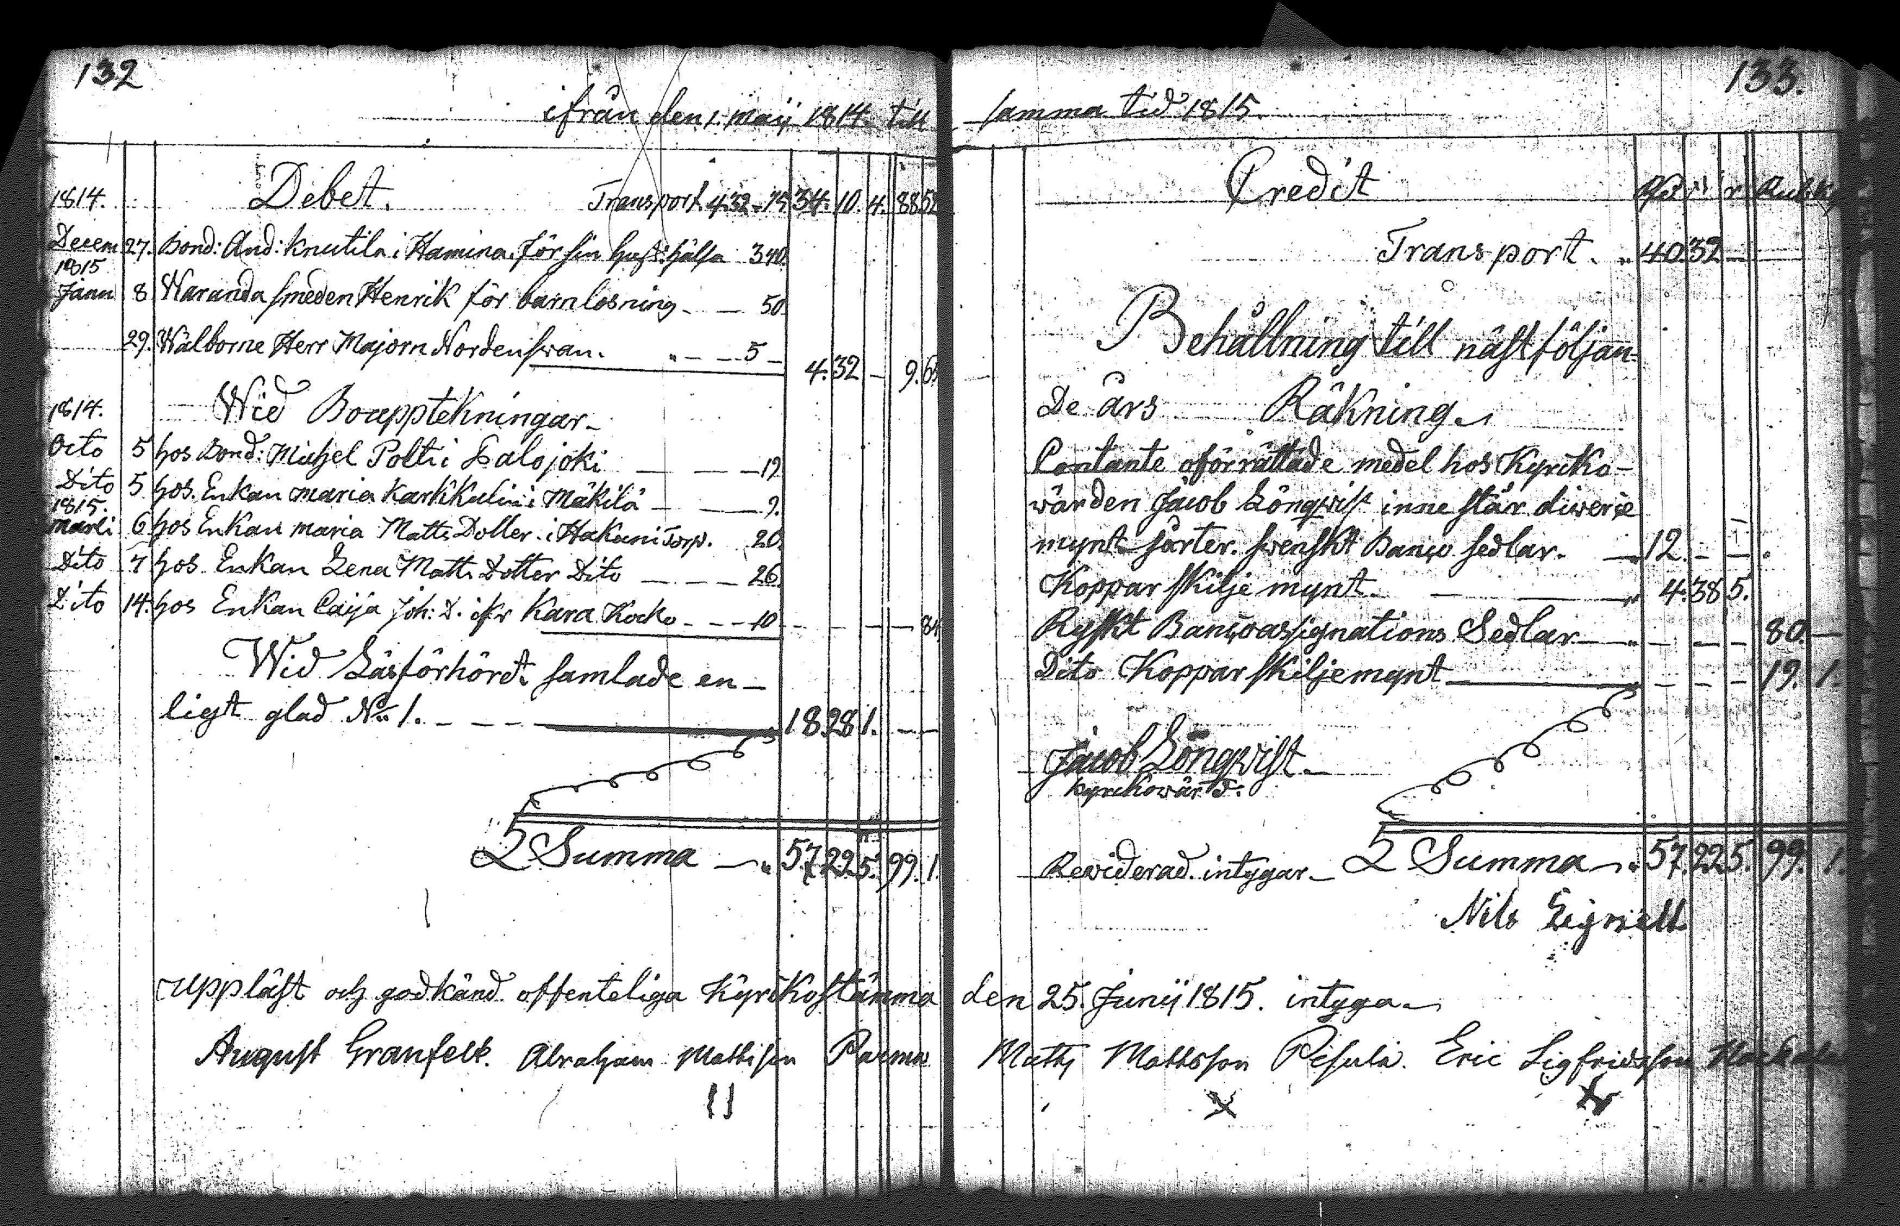 132
ifrån den 1. Maij 1814. till
1814. Debet. Transport 4.32.  34. 10. 4. 88 52
Decem 27. Bond: And: Knutila i Hamina för sin hust: hälsa 3 40.
1815
Janu 8 Waranda smeden Henrik för barnlösning - - 50.
29. Wälborne Herr Majorn Nordensvan. " - - 5 - 4. 32 - 9. 68
1814. Wid Bouppteckningar
Octo 5 hos Bond: Michel Poltti i Salojoki - - - 19
Dito 5 hos. Enkan Maria i Mäkilä - - - 9.
1815.
Marti 6 hos Enkan Maria Matts Dotter i Torp. 20.
Dito 7 hos Enkan Lena Matts Dotter Dito - - - 26.
Dito 14. hos Enkan Caija Joh: D. Kara Kocko - - - 10 - - - - 84
Wid Läsförhördt samlade en-
ligt No 1. - - - 18. 28 1. - -
Summa - " 57. 22. 5. 99. 1.
Uppläst och godkänd offenteliga Kyrkostämma
August Granfelt. Abraham Mathsson Parma
133.
samma tid 1815.
Credit
Transport. " 40. 32 -
Behållning till nästföljan-
De års Räkning.
Contante oförrättade medel hos Kyrko-
wärden Jacob Lönqvist inne står diverse
mynt sorter. svenskt Banco Sedlar. - 12. - - .
Koppar skilje mynt. - - " 4. 38 5.
Ryskt Bancoassignations Sedlar - " - - - 80. -
Dito Koppar skiljemynt - - - 19. 1.
Jacob Lönqvist
Kyrckowärd.
Rewiderad. intygar - Summa - " 57. 22 5. 99. 1.
Nils
den 25. Junij 1815. intyga
Maths Mathsson Pesula. Eric Sigfridsson